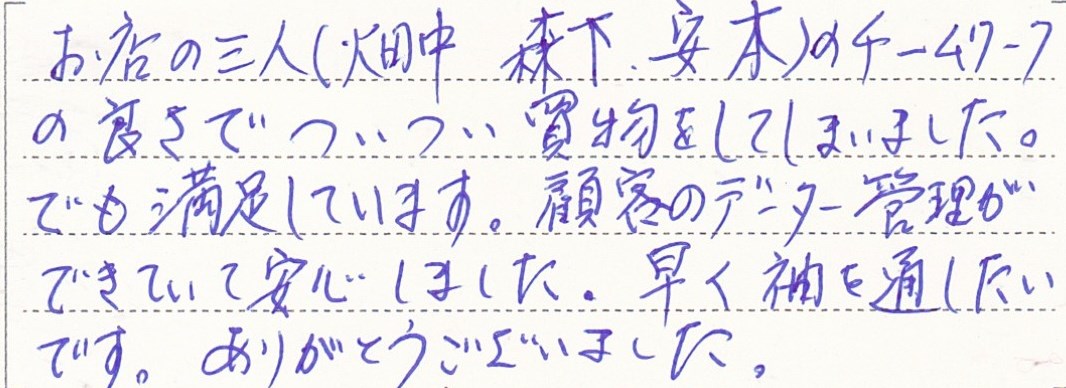 お店の三人(畑中 森下、安本)のチームワーク
の良さでついつい買物をしてしまいました。
でも満足しています。顧客のデーター管理が
できていて安心しました。早く袖を通したい
です。ありがとうございました。